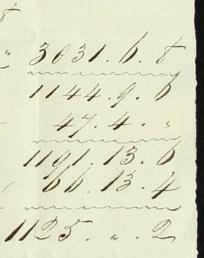 8
„ 3031.6.8
1144.9.6
47.4.„
1191.13.6
66.13.4
1125.„.2